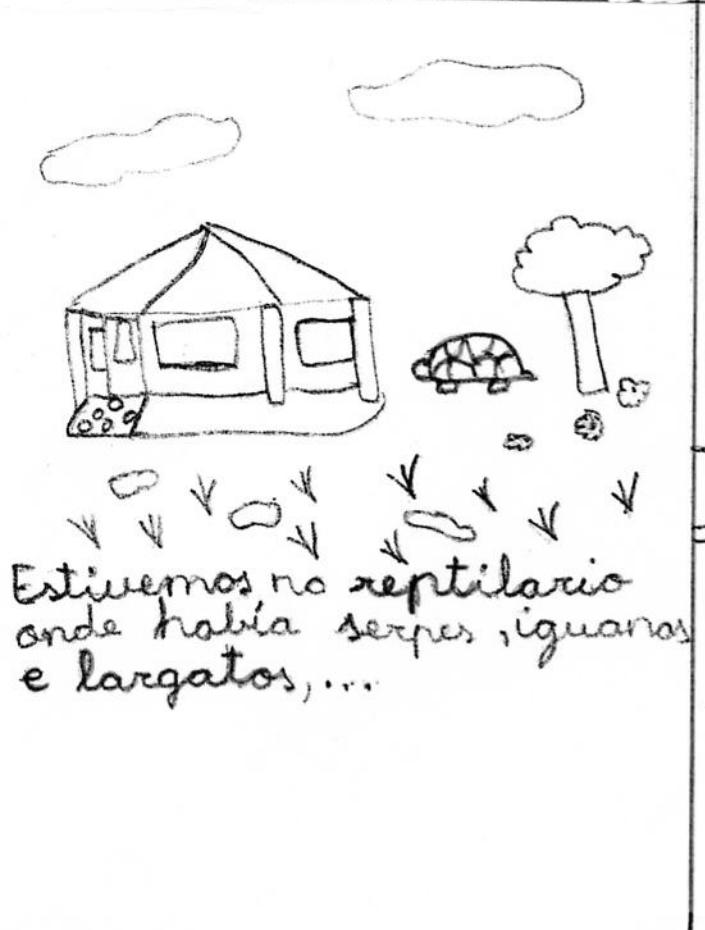 Estivemos no reptilario
onde había serpes, iguanas
e largatos,...